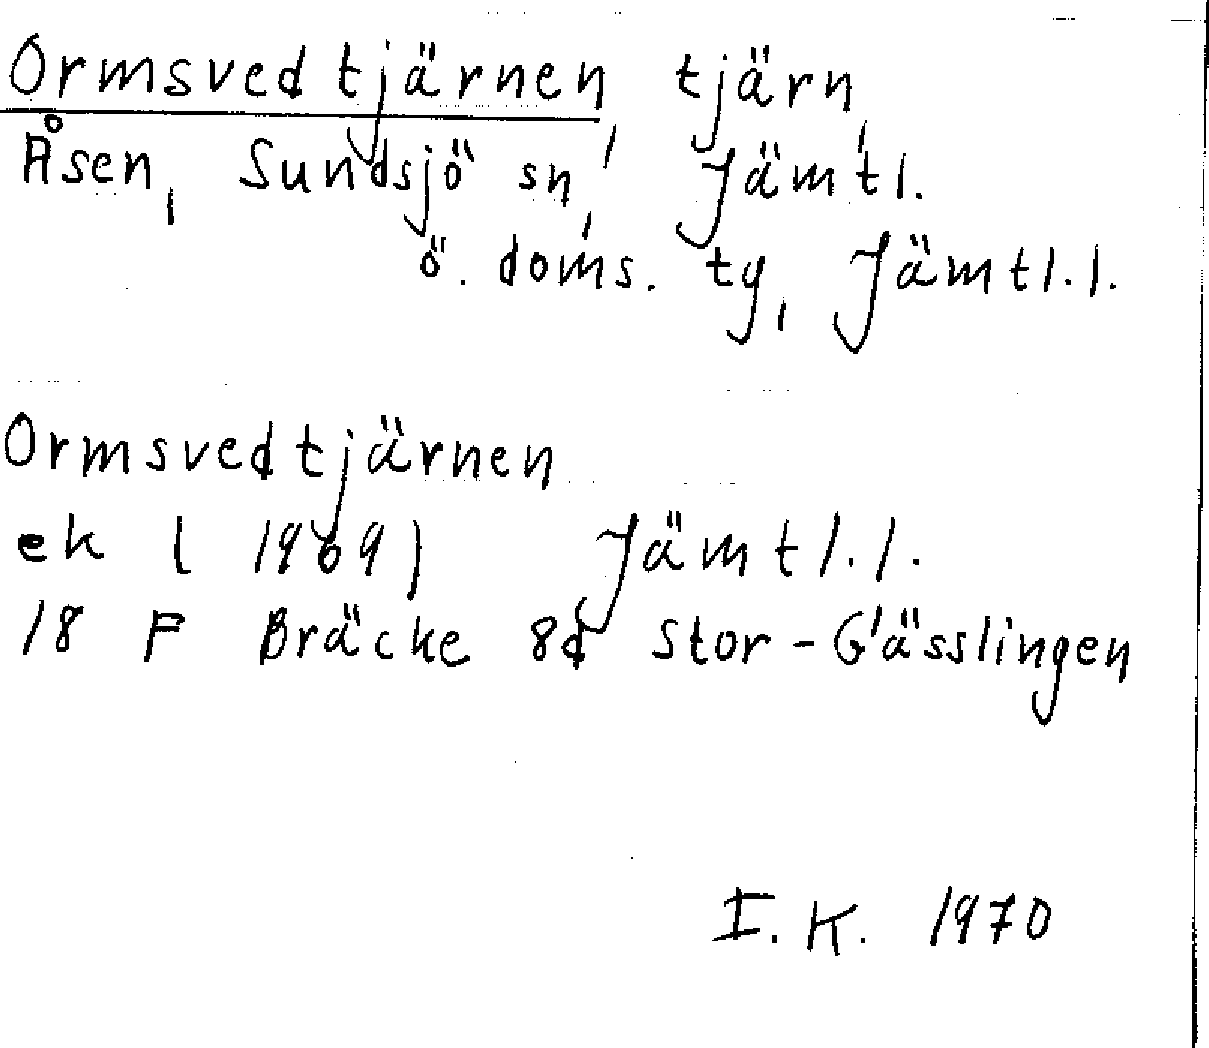 Ormsvedtjärnen, tjärn,
Åsen, Sundsjö sn, Jämtl.
ö. doms. tg, Jämtl. l.
Ormsvedtjärnen
ek ( 1969) Jämtl. l.
18 F Bräcke 8d Stor-Gässlingen
I. K. 1970